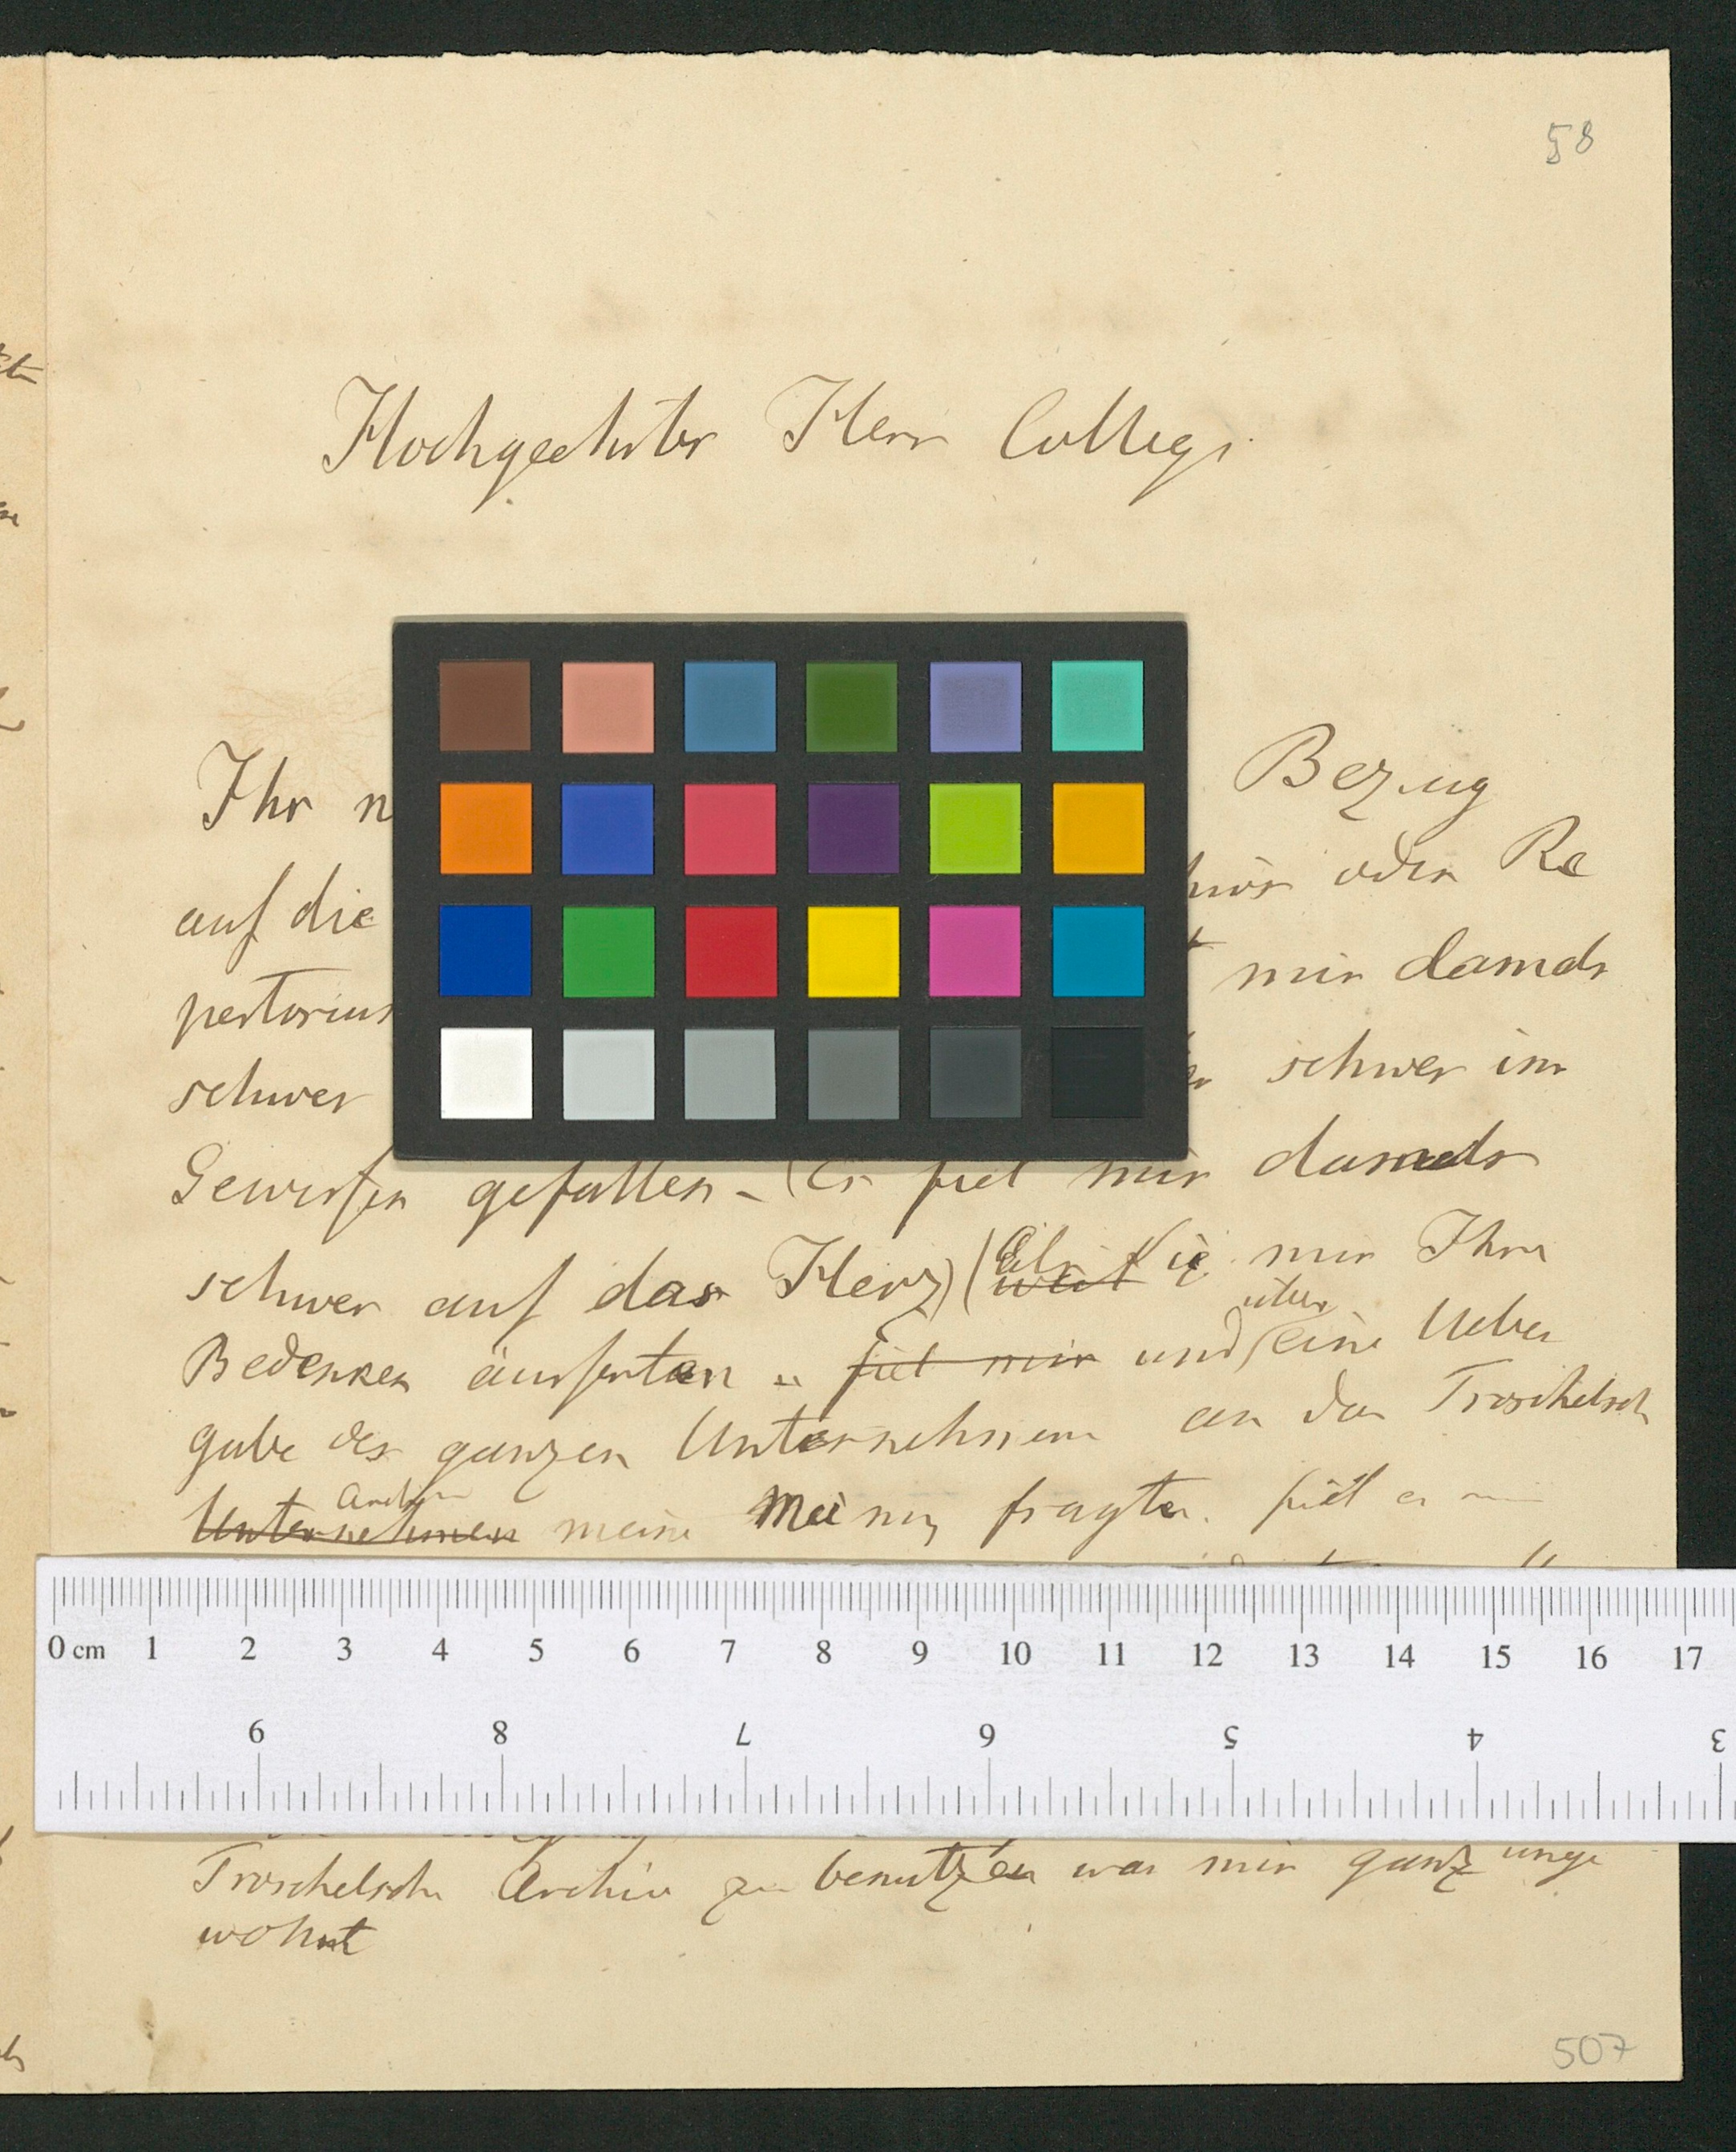 58
Hochgeehrter Herr College
Ihr Bezug
auf die oder Re
mir damals
schwer schwer im
Gewissen gefallen – (Es fiel mir damals
schwer auf das Herz) (weil Als Sie mir Ihre
über
Bedenken äusserten u. fiel mir und eine Ueber
gabe des ganzen Unternehmens an das Troschelsch
Archiv
Unternehmen meine Meinung fragten. fiel es
0 cm 1 2 3 4 5 6 7 8 9 10 11 12 13 14 15 16 17
9 8 7 6 5 4 3
Troschelsche Archiv zu benutzen war mir ganz unge
wohnt
507